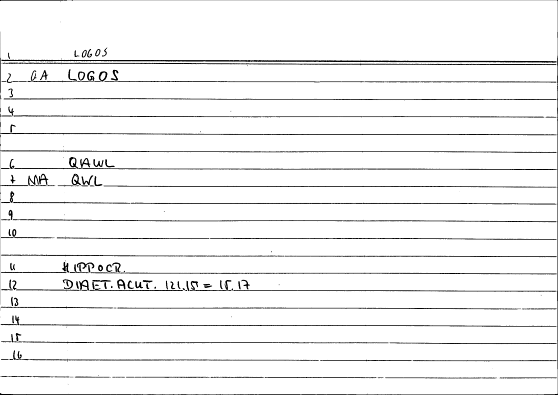 1 LOGOS
2 GA LOGOS
3
4
5
6 QAWL
7 MA QWL
8
9
10
11 HIPPOCR.
12 DIAET.ACUT. 121.15 = 15.17
13
14
15
16